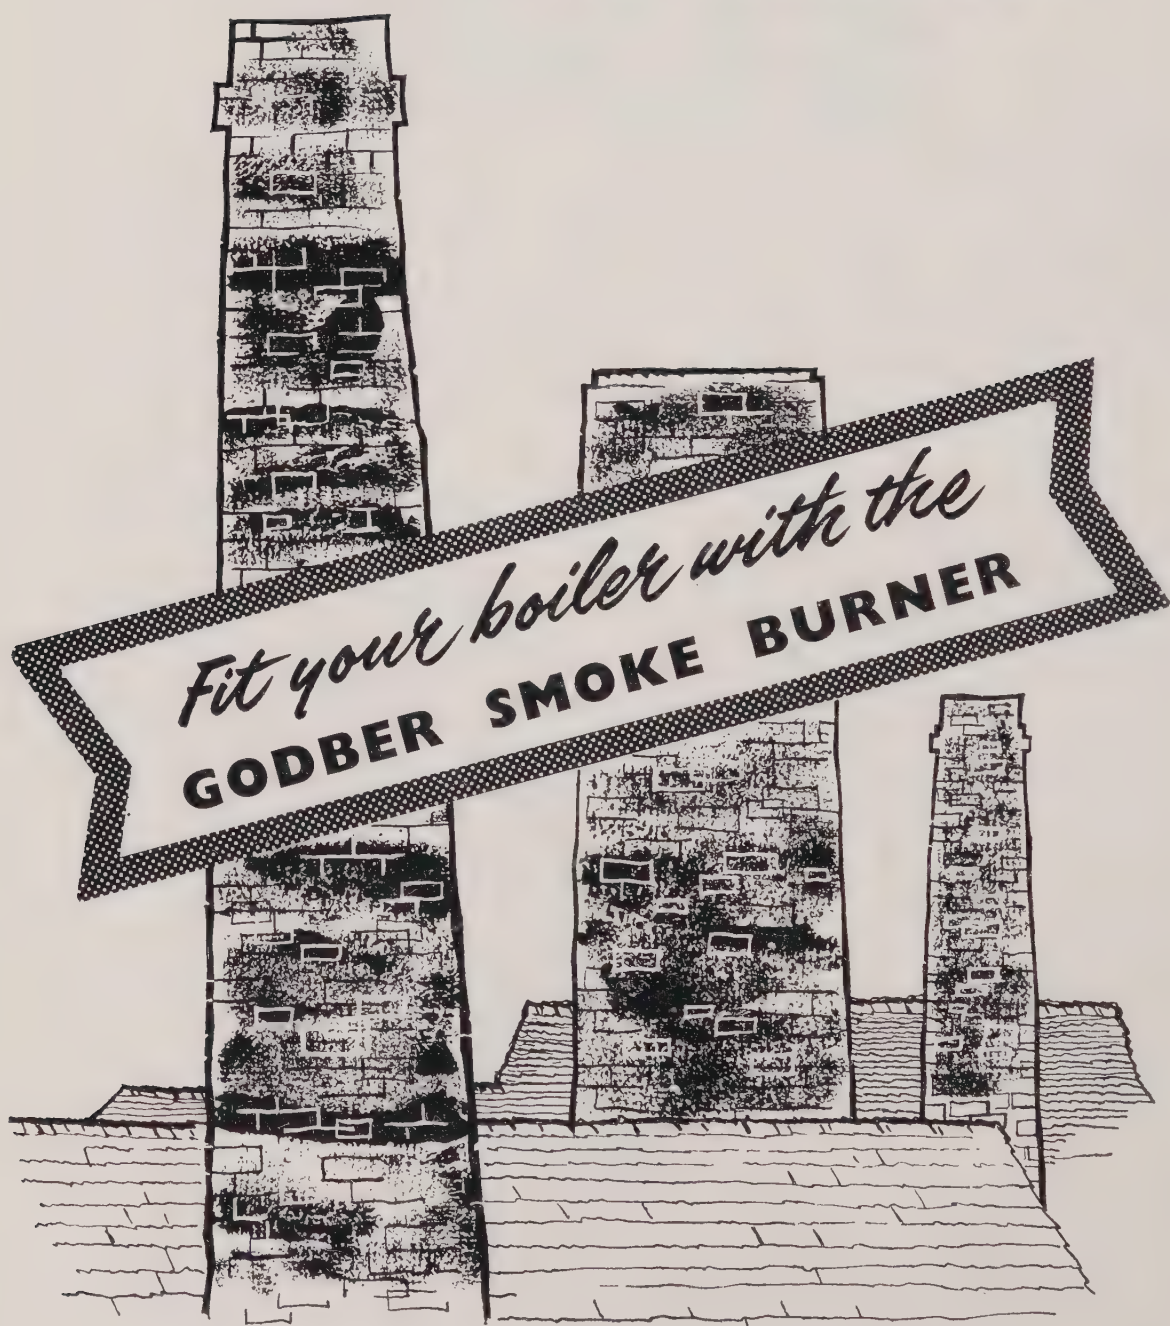 Fit your boiler with the
GODBER SMOKE BURNER